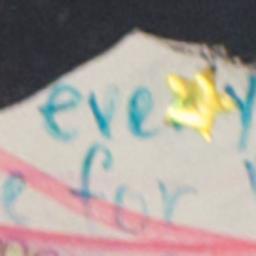 every
e for